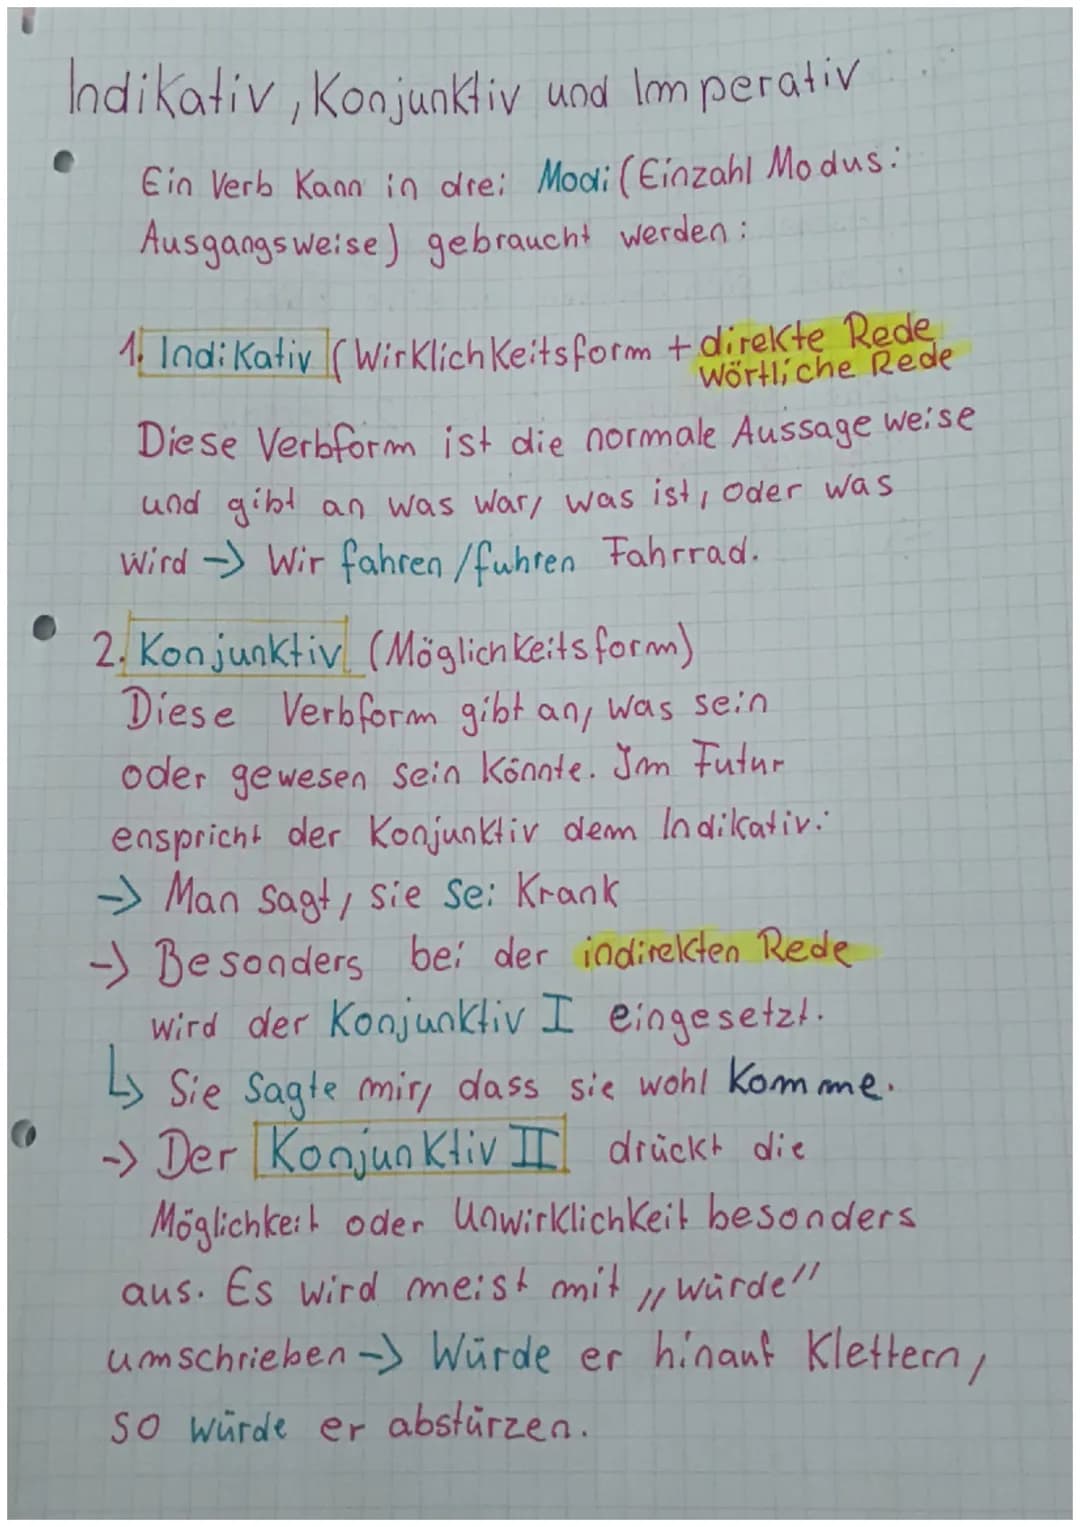 Indikativ, Konjunktiv und Imperativ
Ein Verb kann in drei Modi (Einzahl Modus:
Ausgangsweise) gebraucht werden:
1. Indikativ (Wirklichkeitsform + direkte Rede
wörtliche Rede
Diese Verbform ist die normale Aussageweise
und gibt an was war, was ist, oder was
wird -> Wir fahren/fuhren Fahrrad.
2. Konjunktiv (Möglichkeitsform)
Diese Verbform gibt an, was sein
oder gewesen sein könnte. Im Futur
enspricht der Konjunktiv dem Indikativ:
-> Man sagt, sie sei krank
-> Besonders bei der indirekten Rede
wird der Konjunktiv I eingesetzt.
↳ Sie sagte mir, dass sie wohl komme.
-> Der Konjunktiv II drückt die
Möglichkeit oder Unwirklichkeit besonders
aus. Es wird meist mit „würde"
umschrieben -> Würde er hinauf klettern,
so würde er abstürzen.